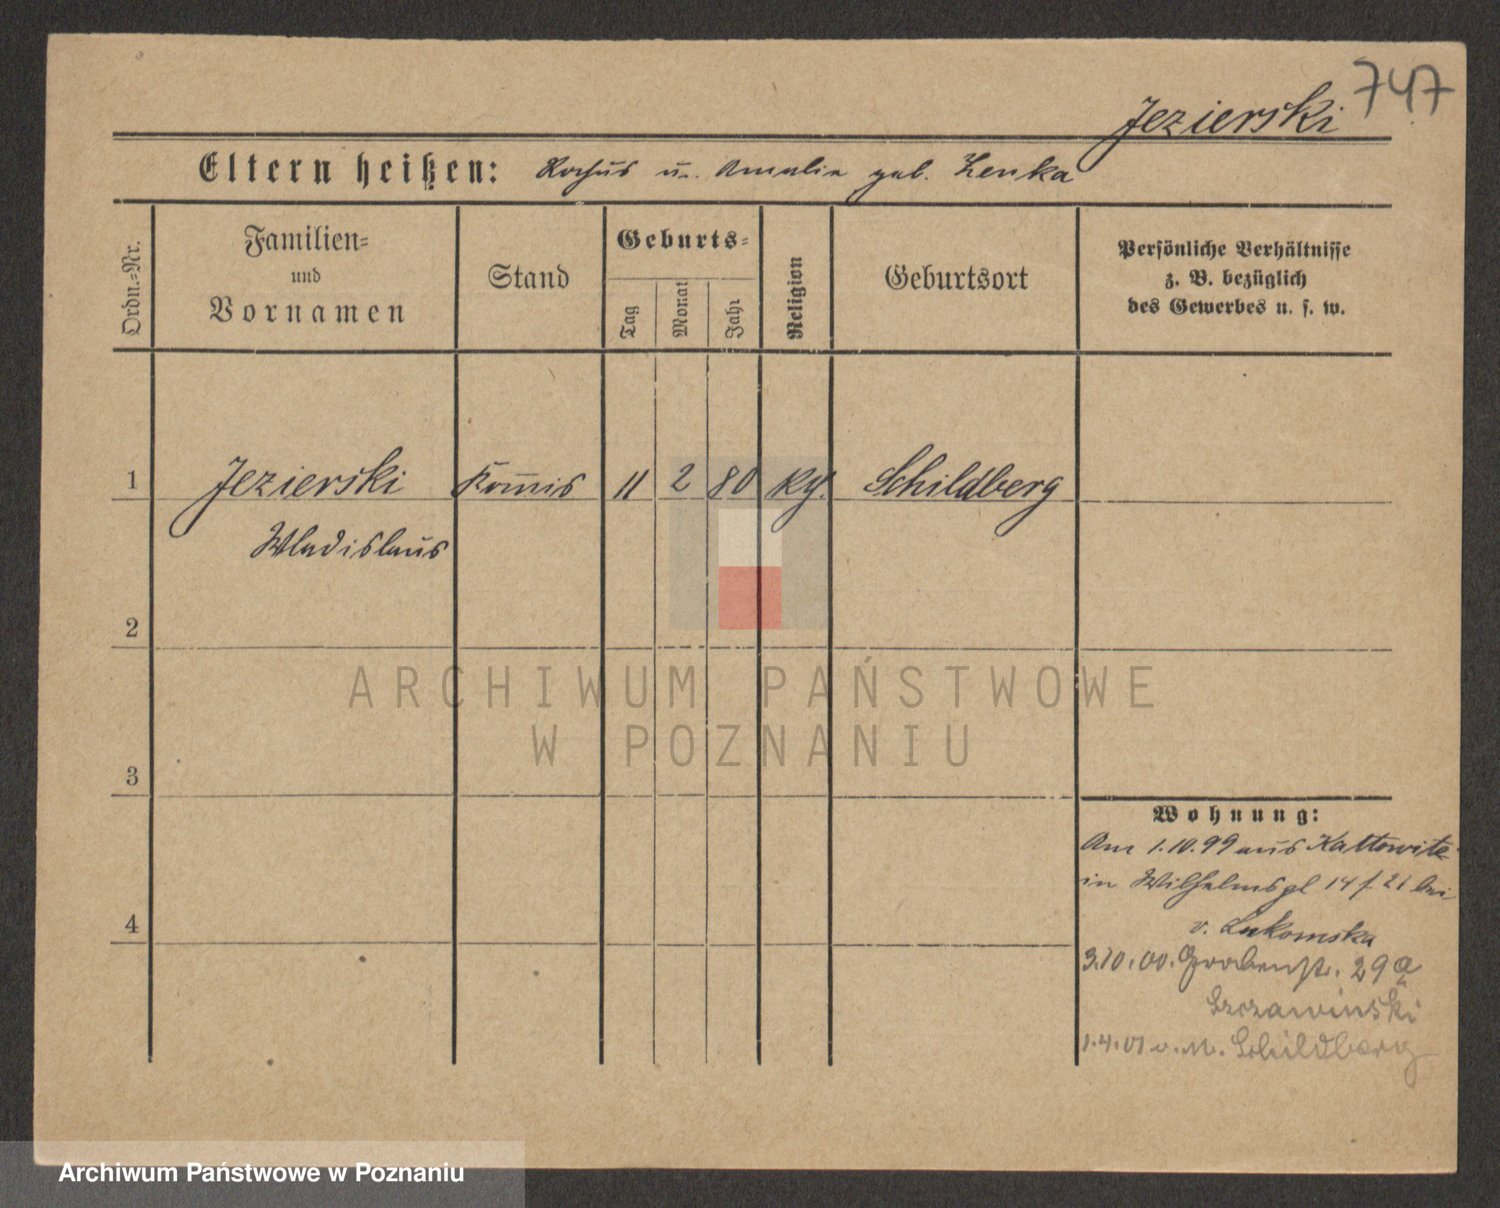 747
Jezierski
Eltern heißen: Rochus u. Amalie geb. Zenka
Ordn.=Nr.
Familien=
und
Vornamen
Stand
Geburts=
Tag
Monat
Jahr
Religion
Geburtsort
Persönliche Verhältnisse
z. B. bezüglich
des Gewerbes u. s. w.
1 Jezierski Kom̅is 11 2 80 Schildberg
Wladislaus
2
ARCHIWUM PAŃSTWOWE
W POZNANIU
3
Wohnung:
Am 1.10.99 aus Kattowitz
in Wilhelmspl 14 f 21 bei
4
v. Lukomska
3.10.00. Grabenstr. 29
Szczawinski
1.4.01 v. n. Schildberg
Archiwum Państwowe w Poznaniu